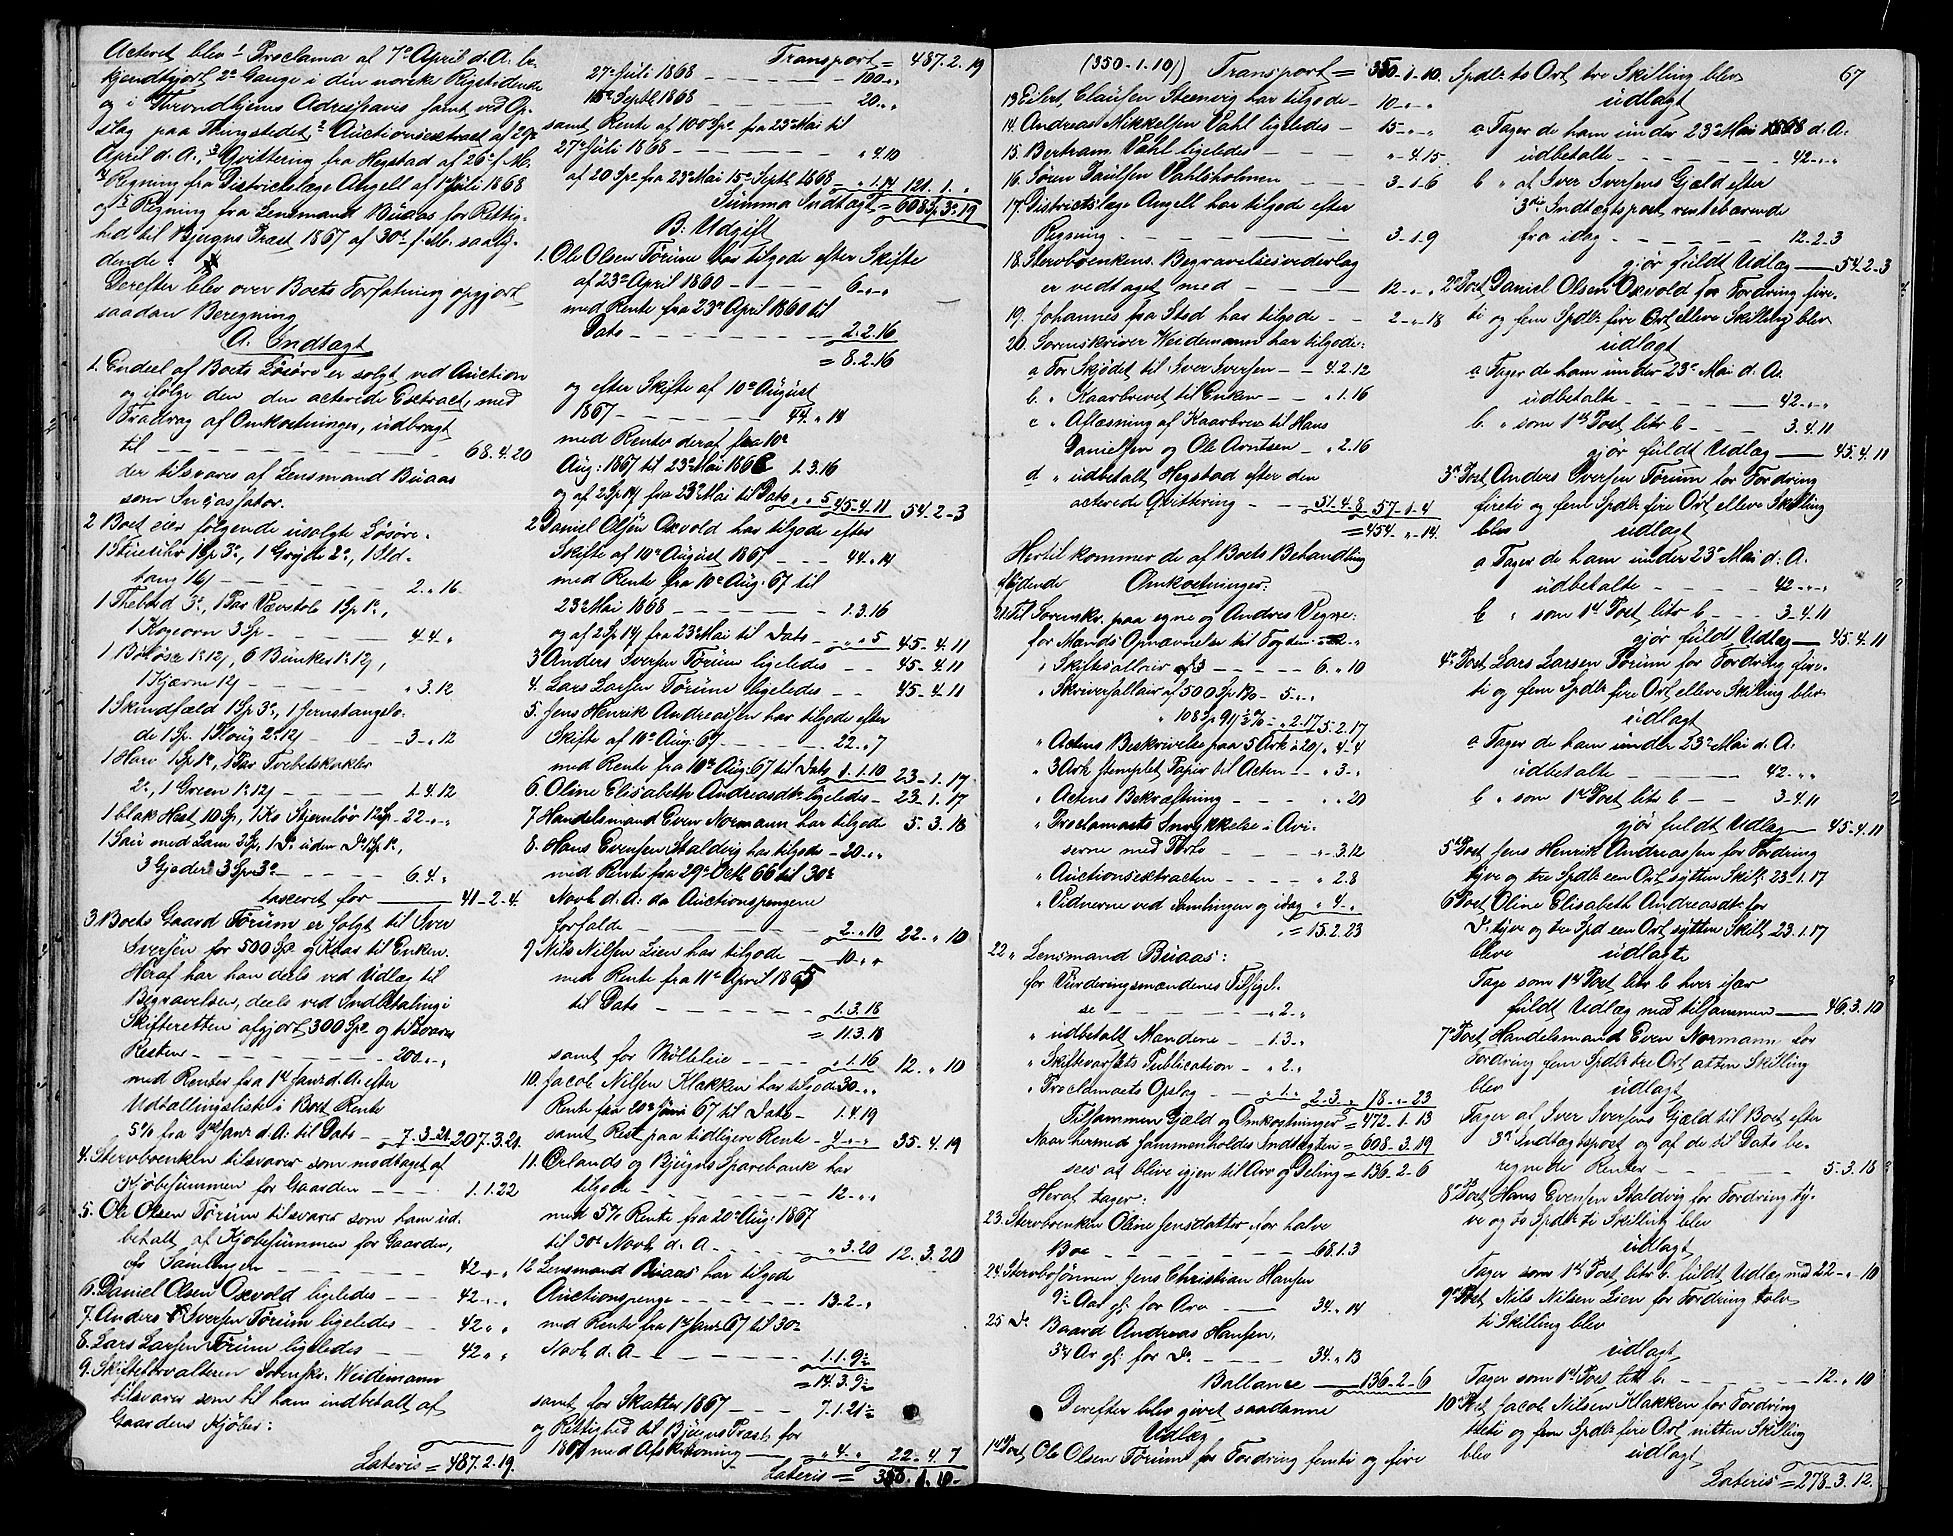 Acteret blev 1 Proclama af 7de April d. A. be-
kjendtgjort 2de Gange i den norske Rigstidende
og i Throndhjems Adresseavis samt ved Op-
slag paa Thingstedet, 2 Auctionsextract af 29de
April d. A., 3 Qvittering fra Hegstad af 26de f. M.
4 Regning fra Districtslæge Angell af 1ste Juli 1868
og 5 Regning fra Lensmand Buaas for Rettig-
hed til Bjugns Præst 1867 af 30te f. M. saaly-
dende:
Derefter blev over Boets Forfatning opgjort
saadan Beregning
A. Indtægt
1. Endeel af Boets Løsøre er solgt ved Auction
og ifølge den den acterede Extract, med
Fradrag af Omkostninger, udbragt
til 68. 4. 20
der tilsvares af Lensmand Buaas
som Incassator.
2 Boet eier følgende usolgte Løsøre:
1 Stueuhr 1 Sp 3 , 1 Gryde 2 , 1 Ild-
tang 16 2. " 16
1 Thebord 3 , 1 Par Vævstole 1 Sp 1 ,
1 Kogeovn 3 Sp 4. 4. "
1 Bøtøse 1 12 , 6 Bunker 1 12 ,
1 Kjærne 12 " 3. 12
1 Skindfæld 1 Sp 3 , 1 Jernstangslæ-
de 1 Sp. 1 Korig 2 12 3. " 12
1 Harv 1 Sp 1 , 1 Par Tvebetskukler
2 , 1 Green 1 12 1. 4. 12
1 blak Hest 10 Sp, 1 Ko Stjernlør 12 Sp 22. " "
1 Sau med Lam 2 Sp, 1 Do uden Do 1 Sp 1 ,
3 Gjeder 3 Sp 3 6. 4. "
taxeret for 41. 2. 4.
3. Boets Gaard Tørum er solgt til Iver
Iversen for 500 Sp og Kaar til Enken.
Heraf har han deels ved Udlæg til
Begravelsen, deels ved Indbetaling i
Skifteretten afgjort 300 Sp og tilsvarer
Resten 200. " "
med Renter fra 1ste Janr d. A. efter
Udtællingsliste i Boet Rente
5% fra 1ste Janr d. A. til Dato 7. 3. 21. 207. 3. 21.
4. Stervboenken tilsvarer som modtaget af
Kjøbesummen for Gaarden 1. 1. 22
5. Ole Olsen Tørum tilsvarer som ham ud-
betalt af Kjøbesummen for Gaarden,
før Samlingen 42. " "
6. Daniel Olsen Oxvold ligeledes 42. " "
7. Anders Iversen Tørum ligeledes 42 " "
8. Lars Larsen Tørum ligeledes 42 " "
9. Skifteforvalteren Sorenskr. Weidemann
tilsvarer som til ham indbetalt af
Gaardens Kjøber:
Lateris = 487. 2. 19.
Transport = 487. 2. 19
27de Juli 1868 100. "
15de Septb 1868 20. "
samt Rente af 100 Sp fra 23de Mai til
27de Juli 1868 " 4. 10
af 20 Sp fra 23de Mai 15de Septb 1868 " 1. 14 121. 1. "
Summa Indtægt = 608 Sp 3. 19
B. Udgift
1. Ole Olsen Tørum har tilgode efter Skifte
af 23de April 1860 6. " "
med Rente fra 23de April 1860 til
Dato 2. 2. 16
= 8. 2. 16
og efter Skifte af 10de August
1867 44. " 14
med Renter deraf fra 10de
Aug: 1867 til 23de Mai 1868 1. 3. 16
og af 2 Sp 14 fra 23de Mai til Dato " " 5 45. 4. 11 54. 2. 3
2 Daniel Olsen Oxvold har tilgode efter
Skifte af 10de August 1867 44. " 14
med Rente fra 10de Aug: 67 til
23de Mai 1868 1. 3. 16
og af 2 Sp 14 fra 23de Mai til Dato " " 5 45. 4. 11
3 Anders Iversen Tørum ligeledes 45. 4. 11
4. Lars Larsen Tørum ligeledes 45. 4. 11
5. Jens Henrik Andreassen har tilgode efter
Skifte af 10de Aug: 67 22. " 7
med Rente fra 10de Aug: 67 til Dato 1. 1. 10 23. 1. 17
6. Oline Elisabeth Andreasdtr ligeledes 23. 1. 17
7 Handelsmand Even Normann har tilgode 5. 3. 18
8. Hans Evensen Staldvig har tilgode 20. " "
med Rente fra 29de Octb 66 til 30te
Novb d. A. da Auctionspengene
forfalde 2. " 10 22. " 10
9 Nils Nilsen Lien har tilgode 10. " "
med Rente fra 11te April 1865
til Dato 1. 3. 18
= 11. 3. 18
samt for Mølleleie " 1. 16 12. " 10
10. Jacob Nilsen Klakken har tilgode 30. " "
Rente fra 20de Juni 67 til Dato 1. 4. 19
samt Rest paa tidligere Rente 4. " " 35. 4. 19
11. Ørlands og Bjugns Sparebank har
tilgode 12. " "
med 5% Rente fra 20de Aug: 1867
til 30te Novb. d. A. " 3. 20 12. 3. 20
12 Lensmand Buaas har tilgode
Auctionspenge 13. 2. "
med Rente fra 1ste Janr 67 til 30te
Novb. d. A. 1. 1. 9½
= 14. 3. 9½
samt for Skatter 1867 7. 1. 21½
og Rettighed til Bjugns Præst for
1867 med Afskrivning " 4. " 22. 4. 7
Lateris = 350. 1. 10.
(350. 1. 10) Transport = 350. 1. 10.
13 Eilert Clausen Steenvig har tilgode 10. " "
14. Andreas Nikkelsen Vahl ligeledes 15. " "
15. Bertram Vahl ligeledes " 4. 15.
16. Søren Paulsen Vahlsholmen 3. 1. 6
17. Districtslæge Angell har tilgode efter
Regning 3. 1. 9
18. Stervboenkens Begravelsesvederlag
er vedtaget med 12. " "
19. Johannes fra Stod har tilgode 2. " 18
20. Sorenskriver Weidemann har tilgode:
a For Skjødet til Iver Iversen 4. 2. 12
b. " Kaarbrevet til Enken " 1. 16
c " Aflæsning af Kaarbrev til Hans
Danielsen og Ole Arntsen " 2. 16
d " udbetalt Hegstad efter den
acterede Qvittering 51. 4. 8 57. 1. 4
= 454. " 14.
Hertil kommer de af Boets Behandling
flydende Omkostninger:
21 Til Sorenskr. paa egne og Andres Vegne:
for Mænds Opnævnelse til Fogden " 2. "
" Skiftesallair af 3 6. " 10
" Skriversallair af 500 Sp 1% 5. " "
" 108 Sp 91 ½% " 2. 17 5. 2. 17
" Actens Beskrivelse paa 5 Ark à 20 " 4. 4
" 3 Ark stemplet Papir til Acten " 3. "
" Actens Bekræftning " " 20
" Proclamaets Indrykkelse i Avi-
serne med Porto " 3. 12
" Auctionsextracten " 2. 8
" Vidnerne ved Samlingen og idag " 4. "
= 15. 2. 23
22. Lensmand Buaas:
for Vurderingsmændenes Tilsigel-
se " 2. "
" udbetalt Mændene 1. 3. "
" Skiftevarslets Publication " 2. "
" Proclamaets Opslag " 1. " 2. 3. " 18. " 23
Tilsammen Gjæld og Omkostninger = 472. 1. 13
Naar hermed sammenholdes Indtægten = 608. 3. 19
sees at blive igjen til Arv og Deling = 136. 2. 6
Heraf tager:
23. Stervboenken Oline Jensdatter for halve
Boe 68. 1. 3
24. Stervbosønnen Jens Christian Hansen
9½ Aar gl. for Arv 34. " 14
25 Do Baard Andreas Hansen,
3¼ Aar gl. for Do 34. " 13
Ballance 136. 2. 6
Derefter blev givet saadanne
Udlæg
1ste Post, Ole Olsen Tørum for Fordring femti og fire
67
Spdlr to Ort tre Skilling blev
udlagt
a Tager de ham under 23de Mai 1868 d. A.
udbetalte 42. " "
b " af Iver Iversens Gjæld efter
3die Indtægtspost rentebærende
fra idag 12. 2. 3
gjør fuldt Udlæg 54. 2. 3
2den Post, Daniel Olsen Oxvold for Fordring fire-
ti og fem Spdlr fire Ort elleve Skilling blev
udlagt
a Tager de ham under 23de Mai d. A.
udbetalte 42. " "
b. " som 1ste Post litr b 3. 4. 11
gjør fuldt Udlæg 45. 4. 11
3die Post Anders Iversen Tørum for Fordring
fireti og fem Spdlr fire Ort elleve Skilling
blev udlagt
a Tager de ham under 23de Mai d. A.
udbetalte 42. " "
b " som 1ste Post litr b 3. 4. 11
gjør fuldt Udlæg 45. 4. 11
4de Post Lars Larsen Tørum for Fordring fire-
ti og fem Spdlr fire Ort elleve Skilling blev
udlagt
a Tager de ham under 23de Mai d. A.
udbetalte 42. " "
b " som 1ste Post litr b 3. 4. 11
gjør fuldt Udlæg 45. 4. 11
5te Post Jens Henrik Andreassen for Fordring
tyve og tre Spdlr een Ort sytten Skill: 23. 1. 17
6te Post, Oline Elisabeth Andreasdtr for
Do tyve og tre Spd een Ort sytten Skill. 23. 1. 17
bleve udlagte
Tage som 1ste Post litr b hver især
fuldt Udlæg med tilsammen 46. 3. 10
7de Post Handelsmand Even Normann for
Fordring fem Spdlr tre Ort atten Skilling
blev udlagt
Tager af Iver Iversens Gjæld til Boet efter
3die Indtægtspost og af de til Dato be-
regnede Renter 5. 3. 18
8de Post Hans Evensen Staldvig for Fordring ty-
ve og to Spdlr ti Skilling blev
udlagt
Tager som 1ste Post litr b. fuldt Udlæg med 22. " 10
9de Post Nils Nilsen Lien for Fordring tolv
ti Skilling blev
udlagt
Tager som 1ste Post litr b. 12. " 10
10de Post, Jacob Nilsen Klakken for Fordring
treti og fem Spdlr fire Ort nitten Skilling
blev udlagt
Lateris = 278. 3. 12.